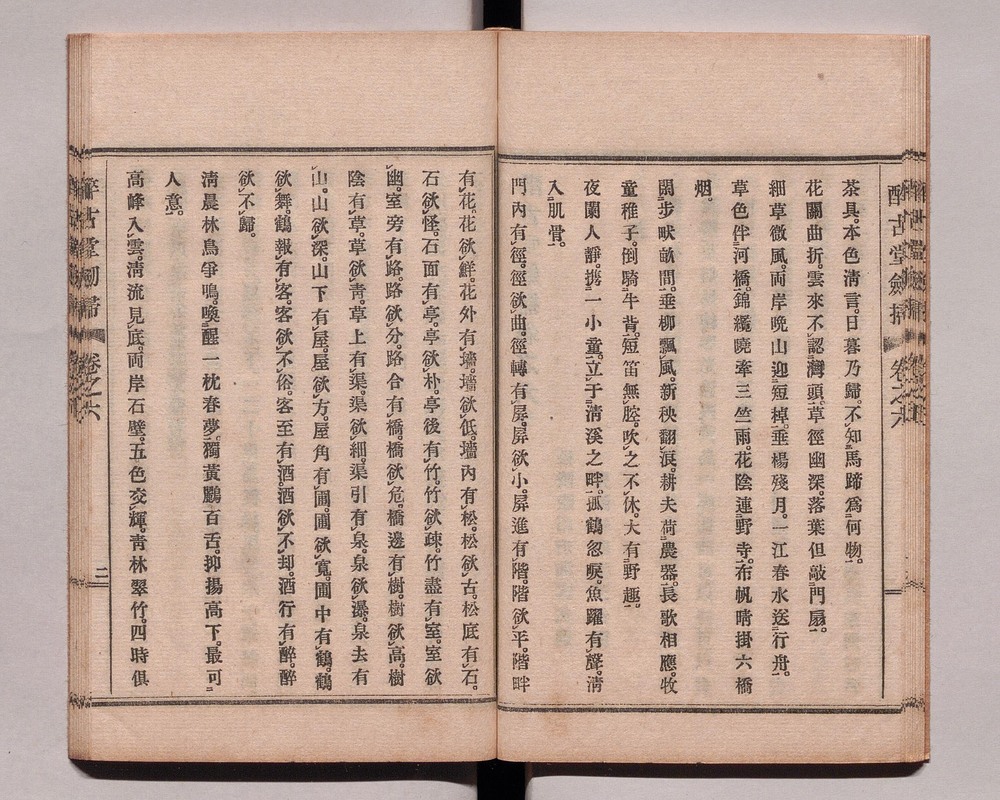 醉古堂劍掃 卷之六
茶具。本色淸言。日暮乃歸。不知馬蹄爲何物。
花關曲折。雲來不認灣頭。草徑幽深。落葉但敲門扇。
細草微風。兩岸晩山迎短棹。垂楊殘月。一江春水送行舟。
草色伴河橋。錦纜曉牽三竺雨。花陰連野寺。布帆晴掛六橋
烟。
閑步畎畝間。垂柳飄風。新秧翻浪。耕夫荷農器。長歌相應。牧
童稚子。倒騎牛背。短笛無腔。吹之不休。大有野趣。
夜闌人靜。携一小童。立于淸溪之畔。孤鶴忽唳。魚躍有聲。淸
入肌骨。
門內有徑。徑欲曲。徑轉有屛。屛欲小。屛進有階。階欲平。階畔
有花。花欲鮮。花外有墻。墻欲低。墻內有松。松欲古。松底有石。
石欲怪。石面有亭。亭欲朴。亭後有竹。竹欲疎。竹盡有室。室欲
幽。室旁有路。路欲分。路合有橋。橋欲危。橋邊有樹。樹欲高。樹
陰有草。草欲靑。草上有渠。渠欲細。渠引有泉。泉欲瀑。泉去有
山。山欲深。山下有屋。屋欲方。屋角有圃。圃欲寬。圃中有鶴。鶴
欲舞。鶴報有客。客欲不俗。客至有酒。酒欲不却。酒行有醉。醉
欲不歸。
淸晨林鳥爭鳴。喚醒一枕春夢。獨黃鸝百舌。抑揚高下。最可
人意。
高峰入雲。淸流見底。兩岸石壁。五色交輝。靑林翠竹。四時俱
醉古堂劍掃 卷之六 二